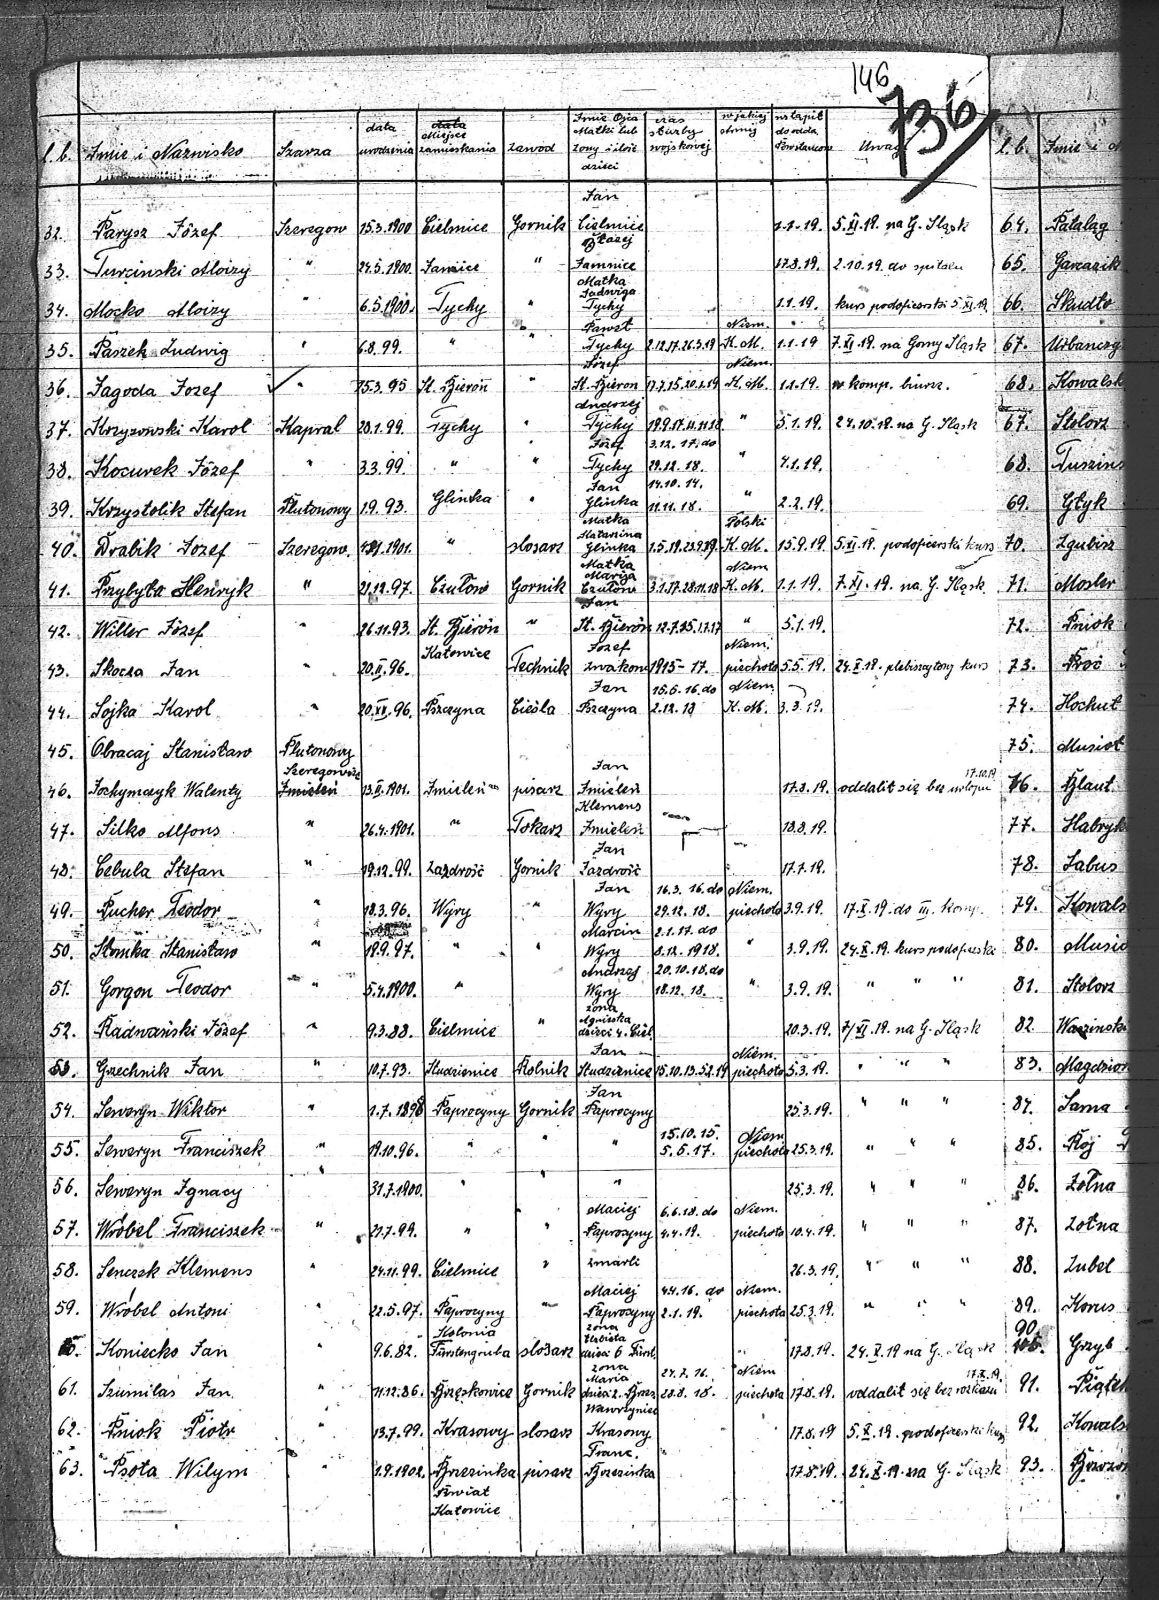 146
736
l.b. Imie i Nazwisko Szarża data urodzenia Miejsce zamieszkania zawód Imie Ojca Matki lub żony i ilość dzieci czas służby wojskowej w jakiej armji wstąpił do oddz. Powstańców Uwagi l.b. Imie i
32. Parysz Józef Szeregow 15.3.1900 Cielmice Gornik Jan Cielmice 1.1.19. 5.XI.19. na G. Sląsk 64. Pataląg
33. " 24.5.1900. " Jamnice 17.8.19. 2.10.19. do spitalu 65.
34. Mocko Aloizy " 6.5.1900. Tychy " Matka Jadwiga Tychy 1.1.19. kurs podoficerski 5.XI.19. 66. Skudło
35. Paszek Ludwig " 6.8.99. " " Paweł Tychy 2.12.17.26.3.19 Niem. K.M. 1.1.19 7.XI.19. na Gorny Sląsk 67. Urbanczy
36. Jagoda Jozef " 15.3.95 St. Bieroń " Józef St. Bieron Niem. K.M. 1.1.19. w komp. biurz. 68. Kowalsk
37. Krzyzowski Karol Kapral 20.1.99. Tychy " Andrzej Tychy 19.9.17.11.11.18 " 5.1.19. 24.10.19. na G. Sląsk 67. Stolorz
38. Kocurek Józef " 3.3.99. " " Józef Tychy 3.12.17. do 29.12.18. " 4.1.19. 68. Tuszins
39. Krzystolik Stefan Plutonowy 1.9.93. Glinka " Jan Glinka 14.10.14. 11.11.18. " 2.2.19. 69. Głyk
40. Drabik Jozef Szeregow. " slosarz Matka Katarzina Glinka Polski K.M. 15.9.19. 5.XI.19. podoficerski kurs 70. Zgubisz
41. Przybyła Henryk " 21.12.97. Czułow Gornik Matka Marija Czułow 3.1.17.28.11.18 Niem K.M. 1.1.19. 7.XI.19. na G. Sląsk 71. Mosler
42. Willer Józef " 26.11.93. St. Bieroń " Jan St. Bieroń 12.7.15.1.1.17 " 5.1.19. 72. Pniok
43. Skocza Jan " 20.II.96. Katowice Technik Józef 1915-17. Niem. piechota 5.5.19. 24.X.19. plebiscytowy kurs 73. Proć
44. Sojka Karol " 20.XII.96. Pszczyna Cieśla Jan Pszczyna 15.6.16. do 2.12.18 Niem. K.M. 3.3.19. 74. Hochuł
45. Obracaj Stanisław Plutonowy 75. Musioł
46. Jochymczyk Walenty Szeregowiec 13.II.1901. Imieleń pisarz Jan Imieleń 17.8.19. oddalił się bez urlopu 17.10.19 76. Blaut
47. Silko Alfons " 26.4.1901. " Tokarz Klemens Imieleń 18.8.19. 77. Habryk
48. Cebula Stefan " 19.12.99. Zazdrość Gornik Jan Zazdrość 17.7.19. 78. Labus
49. Pucher Teodor " 18.3.96. Wyry " Jan Wyry 16.3.16. do 29.12.18. Niem. piechota 3.9.19. 17.X.19. do III. komp. 79. Kowals
50. Słomka Stanisław " 19.9.97. " " Marcin Wyry 2.1.17. do 8.12.1918. " 3.9.19. 24.X.19. kurs podoficerski 80. Musio
51. Gorgon Teodor " 5.4.1900. " Andrzej Wyry 20.10.18. do 18.12.18. " 3.9.19. " " " 81. Stolorz
52. Radwański Józef " 9.3.88. Cielmice " żona Agnieska dzieci 4. Ciel. 20.3.19. 7/XI.19. na G. Sląsk 82. Wazinski
53. Grzechnik Jan " 10.7.93. Studzienice Rolnik Jan Studzienice 15.10.13.5.2.19 Niem. piechota 5.3.19. " " " 83. Magdzior
54. Seweryn Wiktor " 1.7.1898 Paprocyny Gornik Jan Paprocyny 25.3.19. " " " 84. Sama
55. Seweryn Franciszek " 19.10.96. " " " 15.10.15. 5.5.17. Niem piechota 25.3.19. " " " 85. Roj
56. Seweryn Ignacy " 31.7.1900. " " " 25.3.19. " " " 86. Zołna
57. Wróbel Franciszek " 21.7.99. " " Maciej Paprocyny 6.6.18. do 4.4.19. Niem. piechota 10.4.19. " " " 87. Zołna
58. Senczek Klemens " 24.11.99. Cielmice " zmarli 26.3.19. " " " 88. Zubel
59. Wróbel Antoni " 22.5.97. Paprocyny " Maciej Paprocyny 4.4.16. do 2.1.19. Niem. piechota 25.3.19. " " " 89. Korus
60. Koniecko Jan " 9.6.82. Kolonia Fürstengruba slosarz żona Elzbieta dzieci 6 Fürst. " 17.8.19. 24.X.19 na G. Sląsk 90. Grzyb
61. Szumilas Jan " 11.12.86. Brzęskowice Gornik żona Maria dzieci 2. Brzez. 24.7.16. 28.8.18 Niem piechota 17.8.19. oddalił się bez rozkazu 17.X.19. 91. Piątek
62. Pniok Piotr " 13.7.99. Krasowy slosarz Wawrzyniec Krasowy " 17.8.19 5.X.19. podoficerski kurs 92. Kowals
63. Psota Wilym " 1.9.1902. Brzezinka Powiat Katowice pisarz Franc. Brzezinka 17.8.19. 24.X.19. na G. Sląsk 93.